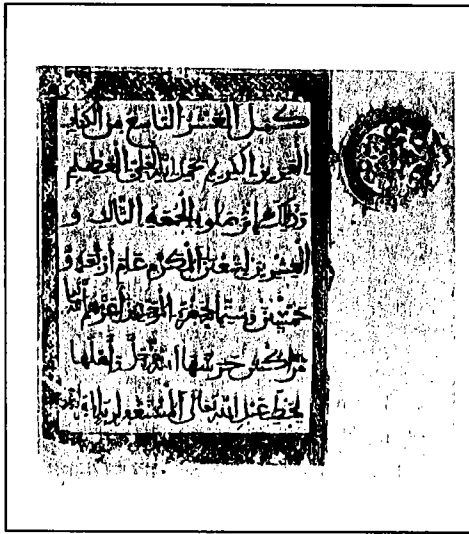 كمل العشر التاسع من الكتاب
العزيز الكريم بحمد الله العلي العظيم
وذلك اثر صلوة الجمعة الثالث و
العشرين لشعبن المكرم عام أربعة و
خمسين وستمائة بحضرة الموحدين أعزهم الله
مراكش حرسها الله وأهلها
بخط عبد الله تعالى المستغفر لربه